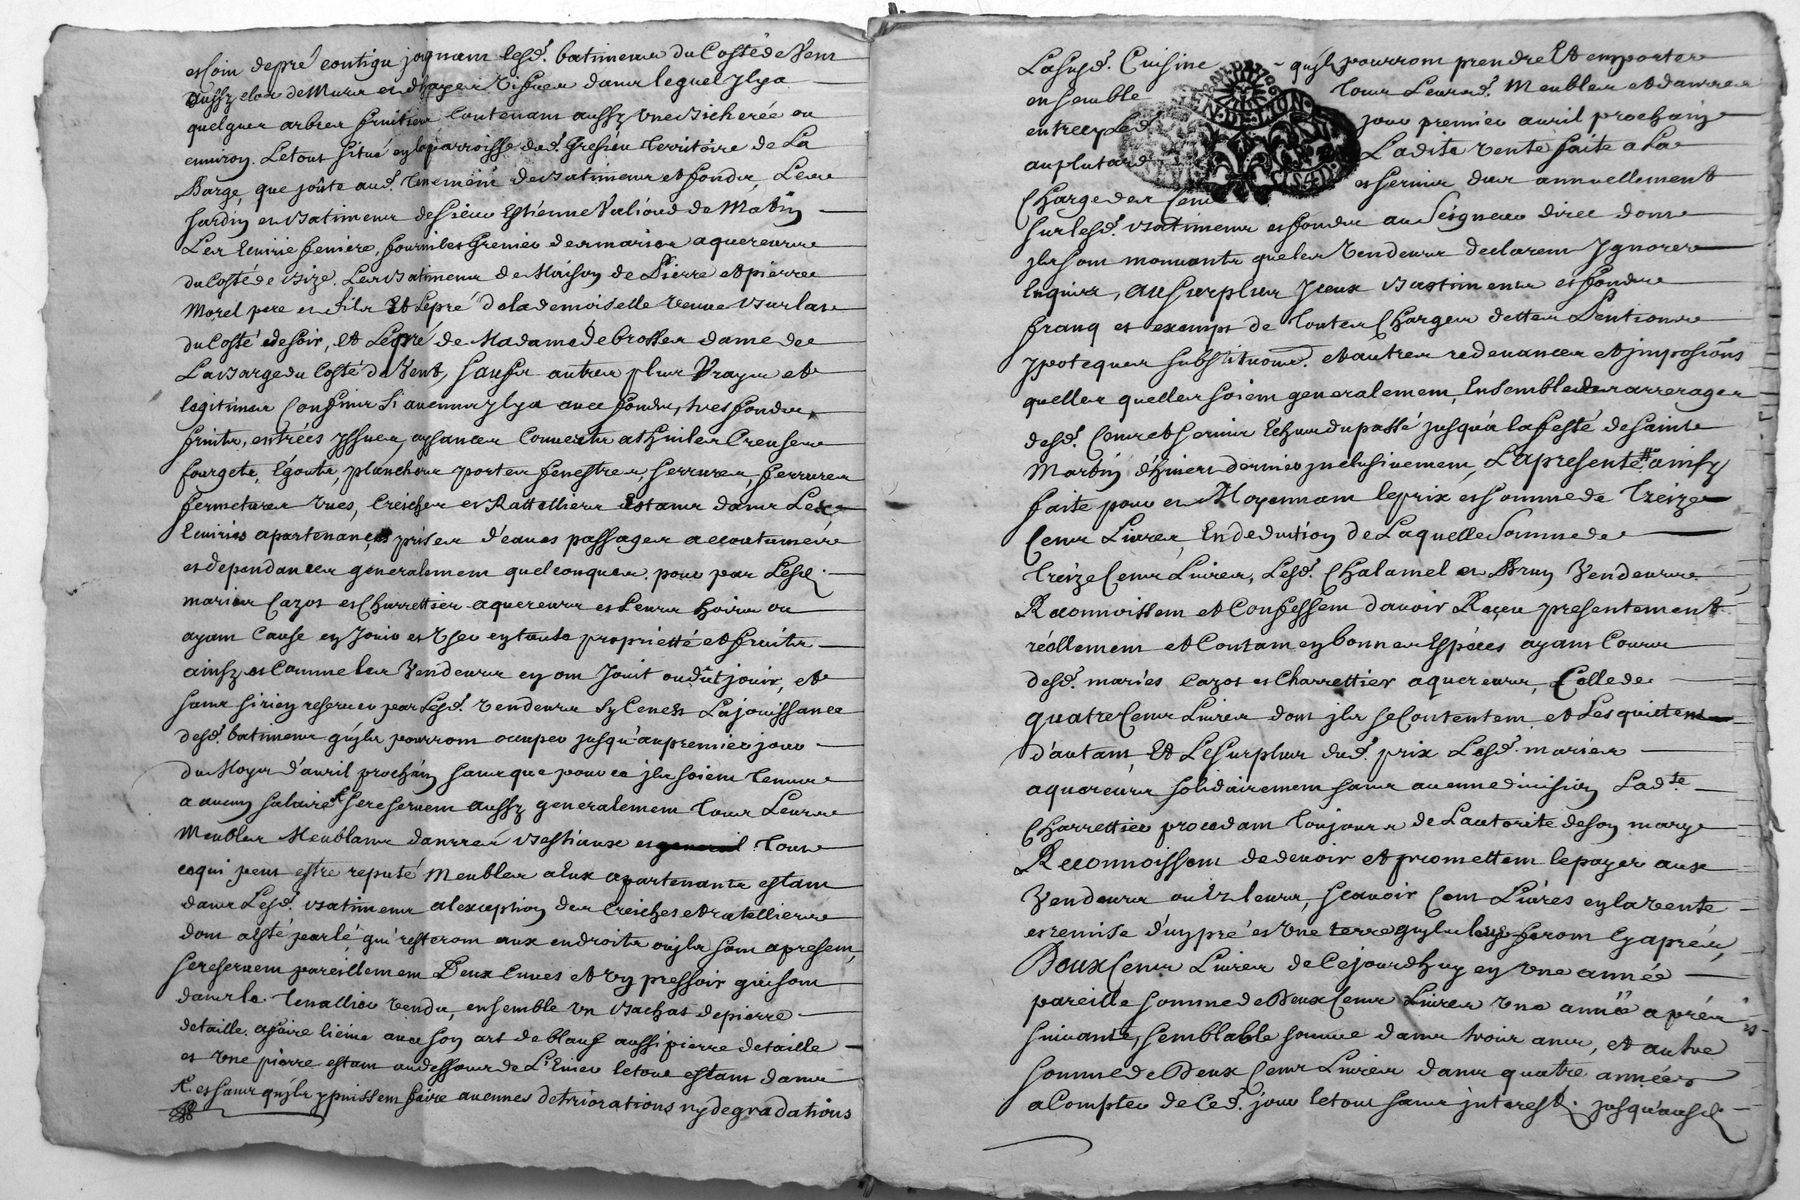 et coin de pré contigu joignant lesd. batimens du Costé de Vent
aussy clos de Murs et hayes vifves dans lequel jl y a
quelques arbres fruitiers Contenant aussy Une bicherée ou
environ. Le tout situé en la parroisse dud. Gresieu Territoire de La
Barge, que joûte aud. tenement de batimens et fonds, Les
Jardin et batimens de sieur Estienne Valioud de Matin
Les Ecurie feniere, fournil et Grenier des maries aquereurs
du Costé de bize. Les batimens de Maison de Pierre et pierre
Morel pere et fils Et Le pré de la demoiselle Veuve
du Costé de soir, et Le pré de Madame de brosses dame de
La barge du Costé de Vent, sauf ses autres plus Vrayes et
legitimes Confins Si aucuns jl y a avec fonds, tresfonds,
fruits, entrées yssues, aysances Couverts
Egouts, planchers portes fenestres, serrures, ferrures
fermetures vues, Creiches et Rattelliers Estans dans Les
Ecuries apartenances prises d'eaues passages accoutumées
et dependances generalement quelconques. pour par Lesd.
maries Cazot et Charrettier aquereurs et Leurs hoirs ou
ayant Cause en Jouir et User en toute proprietté et fruits
ainsy et Comme les Vendeurs en ont Jouit ou dût jouir, et
sans si rien reserver par Lesd. vendeurs Sy Ce n'est La jouissance
desd. batimens qu'jls pourront occuper jusqu'au premier jour
du Moys d'avril prochain sans que pour ce jls soient tenus
a aucun salaire se reservent aussy generalement tous Leurs
Meubles Meublans danrées bestiaux et general tout
ce qui peut estre reputé Meubles a Eux apartenants estant
dans Lesd. batimens a l'exception des Creiches et ratelliers
dont a esté parlé qui resteront aux endroits ou jls sont a present,
se reservent pareillement Deux Cuves et Un pressoir qui sont
dans le tenallier vendu, ensemble Un bachas de pierre
de taille aussi pierre de taille
et Une pierre estant au dessous de L'Evier le tout estant dans
et sans qu'jls y puissent faire aucunes detriorations ny degradations
La susd. Cuisine - qu'jls pourront prendre Et emporter
ensemble tous Leursd. Meubles et danrées
entre cy et Led. jour premier avril prochain
au plus tard Ladite vente faite a La
Charge des Cens et servis dus annuellement
sur lesd. batimens et fonds au Seigneur direc dont
jls sont mouvants que les Vendeurs declarent Ignorer
Enquis, au surplus Jceux bastimens et fonds
franq et exempt de toutes Charges dettes Pentions
ypoteques substituons. et autres redevances et jmposions
quelles quelles soient generalement, Ensemble des arrerages
desd. Cens et servis Echus du passé jusqu'a la festé de Saint
Martin d'hivers dernier jnclusivement, La presente ainsy
faite pour et Moyennant le prix et somme de Treize
Cens Livres, En deduction de Laquelle Somme de
Treize Cens Livres, Lesd. Chalamel et Brun Vendeurs
Reconnoissent et Confessent d'avoir Reçeu presentement
réellement et Contant en bonnes Espéces ayant Cours
desd. maries Cazot et Charrettier aquereurs, Celle de
quatre Cens Livres dont jls se Contentent et Les quittent
d'autant, Et Le surplus dud. prix Lesd. maries
aquereurs solidairement sans aucune division Lad.te
Charrettier procedant toujours de L'autorité de son mary
Reconnoissent de devoir et promettent le payer aux
Vendeurs ou Es leurs, scavoir Cent Livres en la vente
et remise d'un pré et Une terre qu'jls leurs feront Cy aprés,
Deux Cens Livres de Ce jourdhuy en Une année
pareille somme de Deux Cens Livres Une année aprés
suivante, semblable somme dans trois ans, et autre
somme de Deux Cens Livres dans quatre années
a Compter de Ced. jour le tout sans jnterest, jusqu'ausd.